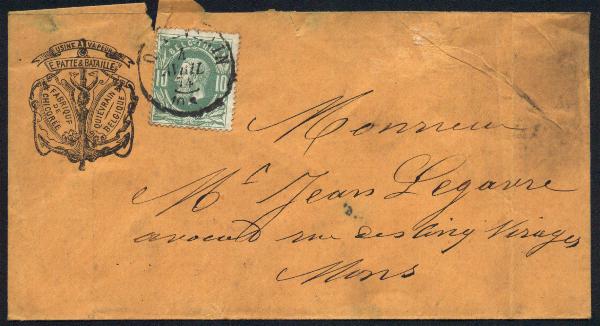 USINE À VAPEUR
E. PATTE & BATAILLE
FABRIQUE
DE
CHICORÉE
QUIEVRAIN
BELGIQUE
10 10
AVRIL
Monsieur
Mr Jean Legavre
avocat rue des cinq Visages
Mons